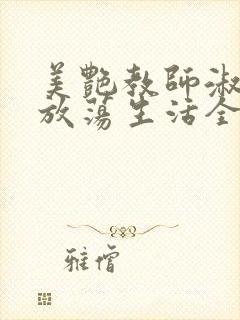 美艷教師淑
放蕩生活全
雅僧